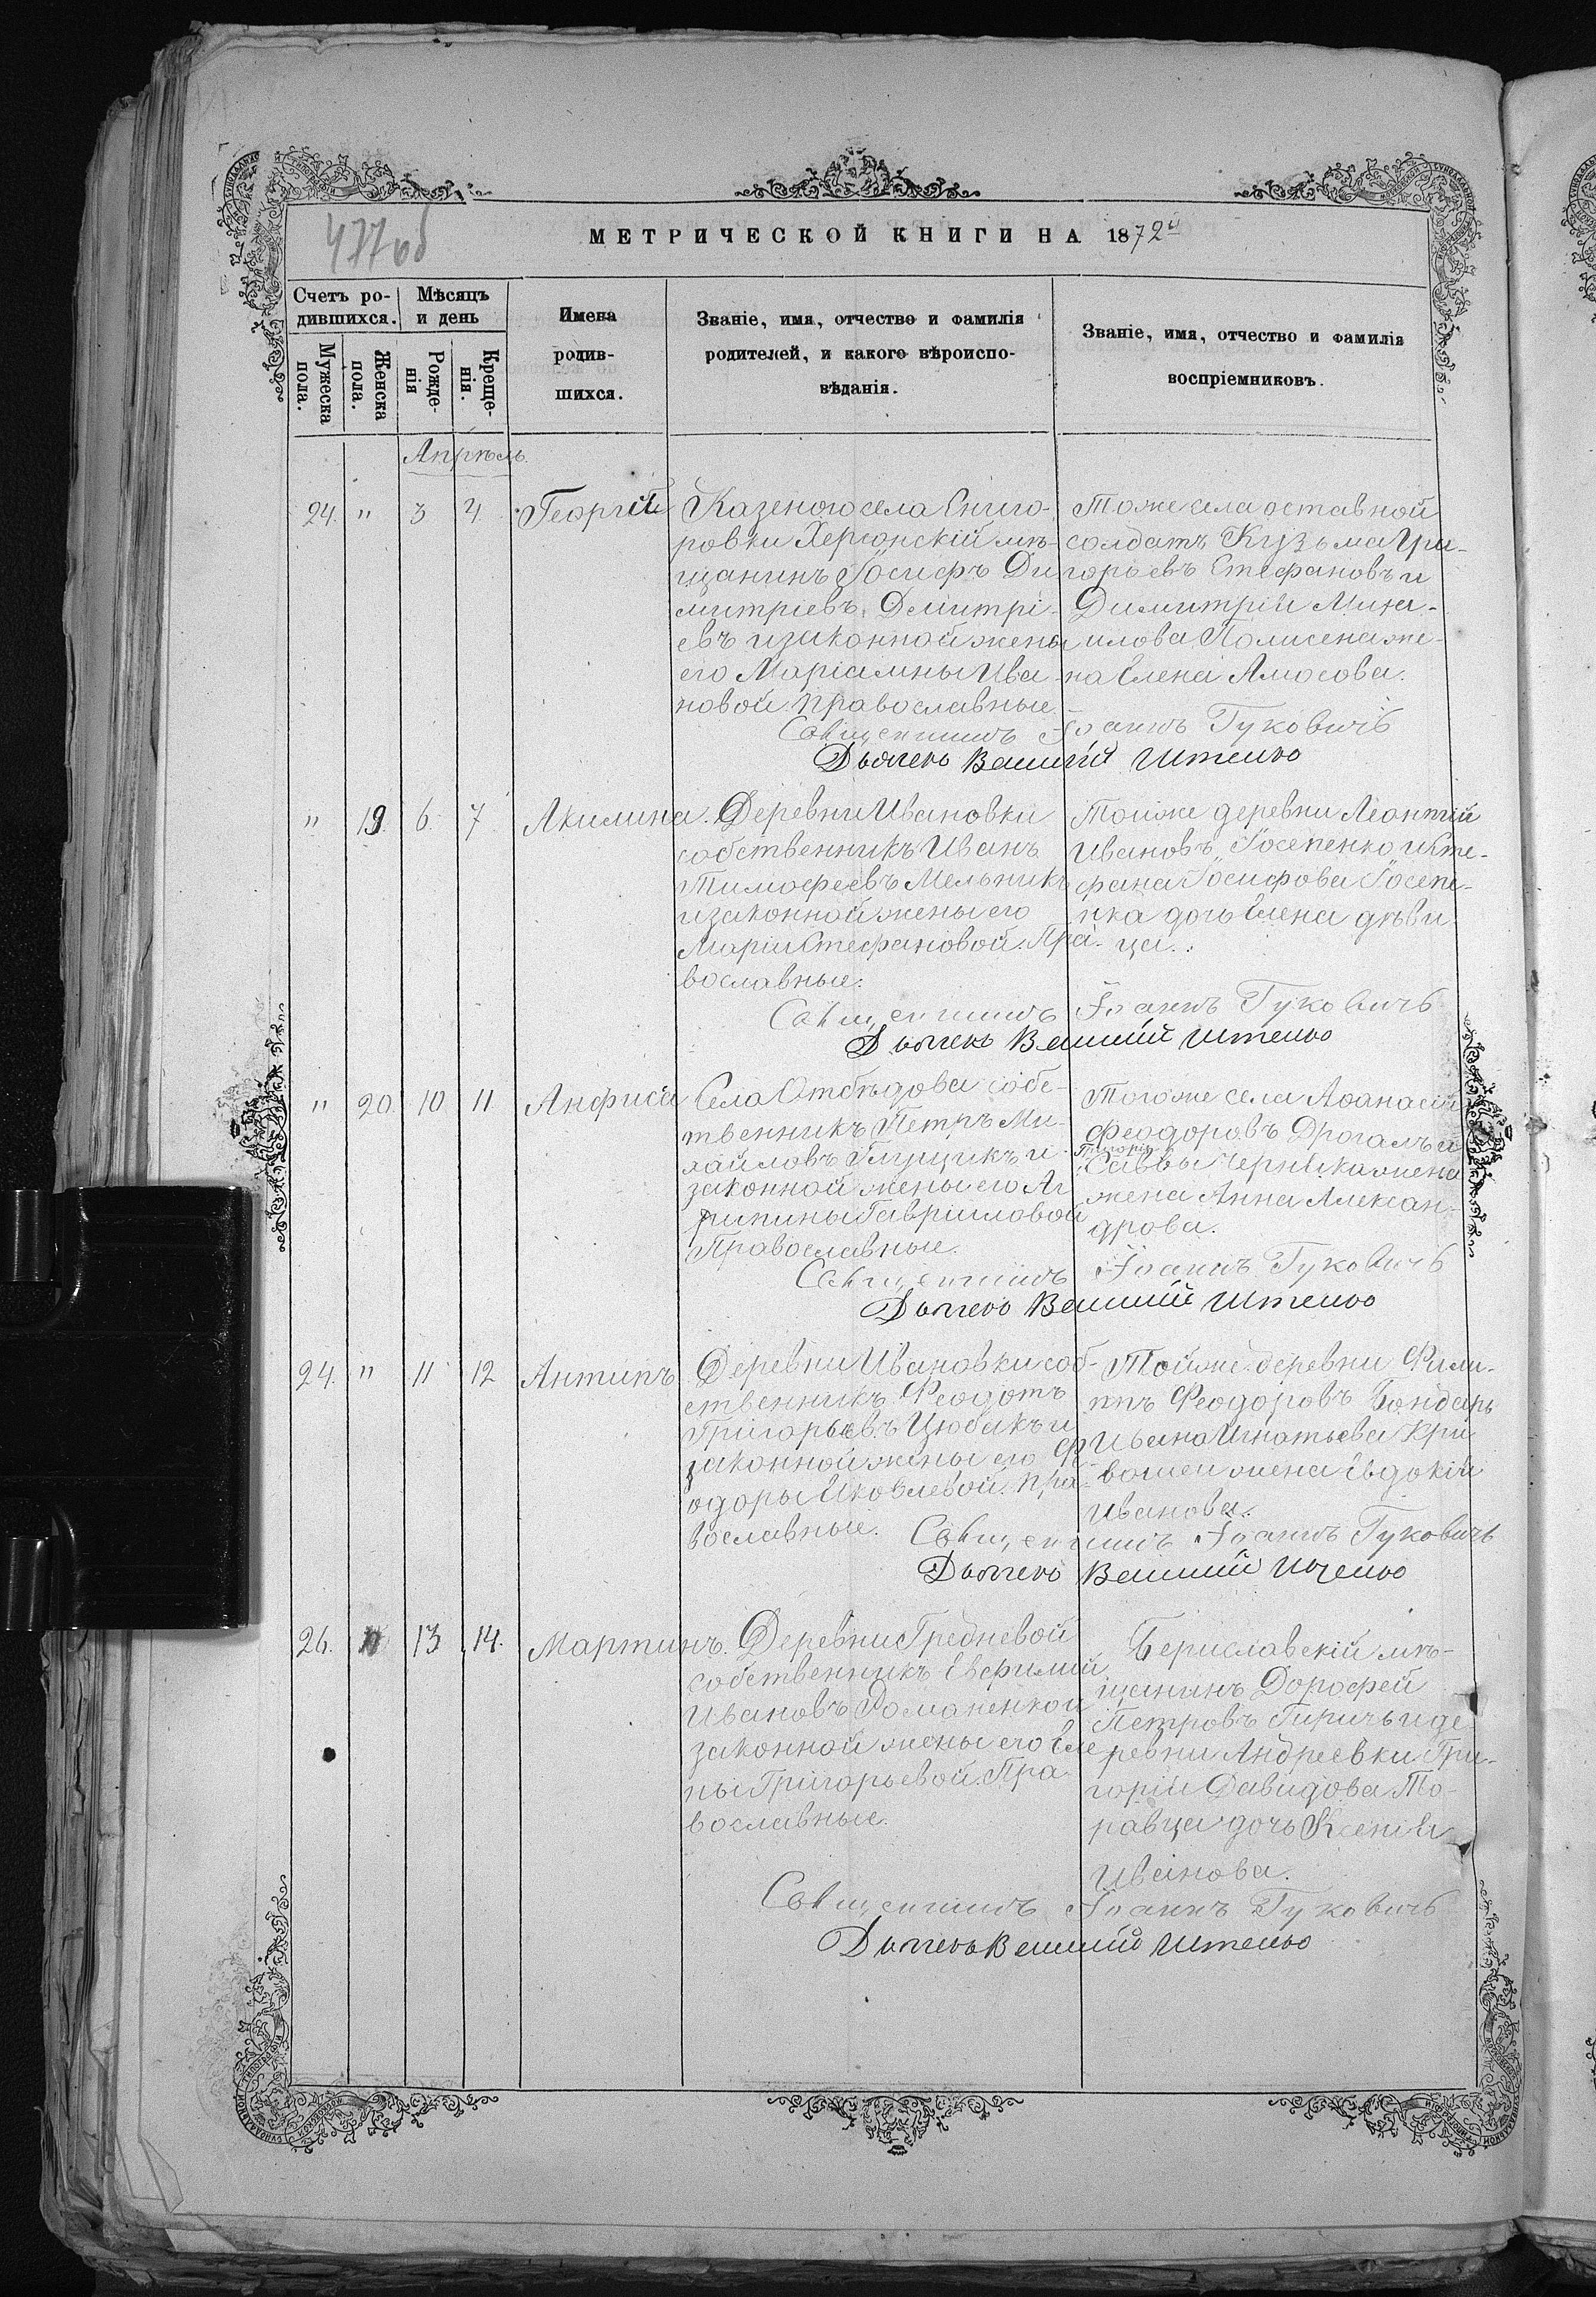 477 об
МЕТРИЧЕСКОЙ КНИГИ НА 1872й
Счетъ ро-
дившихся.
Мѣсяцъ
и день
Мужеска
пола.
Женска
пола.
Рожде-
нія
Креще-
нія.
Имена
родив-
шихся.
Званіе, имя, отчество и фамилія
родителей, и какого вѣроиспо-
вѣданія.
Званіе, имя, отчество и фамилія
воспріемниковъ.
Апрѣль.
24. " 3 4 Георгій
Казеного села Ениго-
ровки Херсонскій мѣ-
щанинъ Іосифъ Ди
митріевъ Димитрі-
евъ и законной жены
его Маріамны Ива-
новой православные
Тоже села оставной
солдатъ Кузьма Гри-
горьевъ Стефановъ и
Димитрія Миха-
илова же-
на Елена Амосова.
Священникъ Іоаннъ Гуковичъ
Дьячекъ
" 19 6 7 Акилина.
Деревни Ивановки
собственникъ Иванъ
Тимофеевъ Мельникъ
и законной жены его
Маріи Стефановой. Пра-
вославные.
Тойже деревни Леонтій
Ивановъ Іосепенко и Сте-
фана Іосифова Іосепе-
нка дочь Елена дѣви
ца.
Священникъ Іоаннъ Гуковичъ
Дьячекъ
" 20. 10 11 Анфиса
Села Отбѣдова собс-
твенникъ Петръ Ми-
хайловъ и
законной жены его Аг
рипины Гавриловой
Православные.
Тогоже села Аѳанасій
Феодоровъ Дрогалъ и
Саввы жена
жена Анна Алексан-
дрова.
Священникъ Іоаннъ Гуковичъ
Дьячекъ
24. " 11 12 Антипъ
Деревни Ивановки соб-
ственникъ Феодотъ
Григорьевъ Цюбакъ и
законной жены его Фе
одоры Яковлевой. Пра-
вославные.
Тойже деревни Фили-
ппъ Феодоровъ Бондарь
Ивана Игнатьева Кри
вошеи жена Евдокія
Иванова.
Священникъ Іоаннъ Гуковичъ
Дьячекъ
26. " 13 14. Мартинъ.
Деревни Гредневой
собственникъ Евфимій
Ивановъ Романенко и
законной жены его Еле
ны Григорьевой. Пра-
вославные.
Бериславскій мѣ-
щанинъ Дорофей
Петровъ и де
ревни Андреевки Гри-
горія Давидова То-
равца дочь Ксенія
Иванова.
Священникъ Іоаннъ Гуковичъ
Дьячекъ